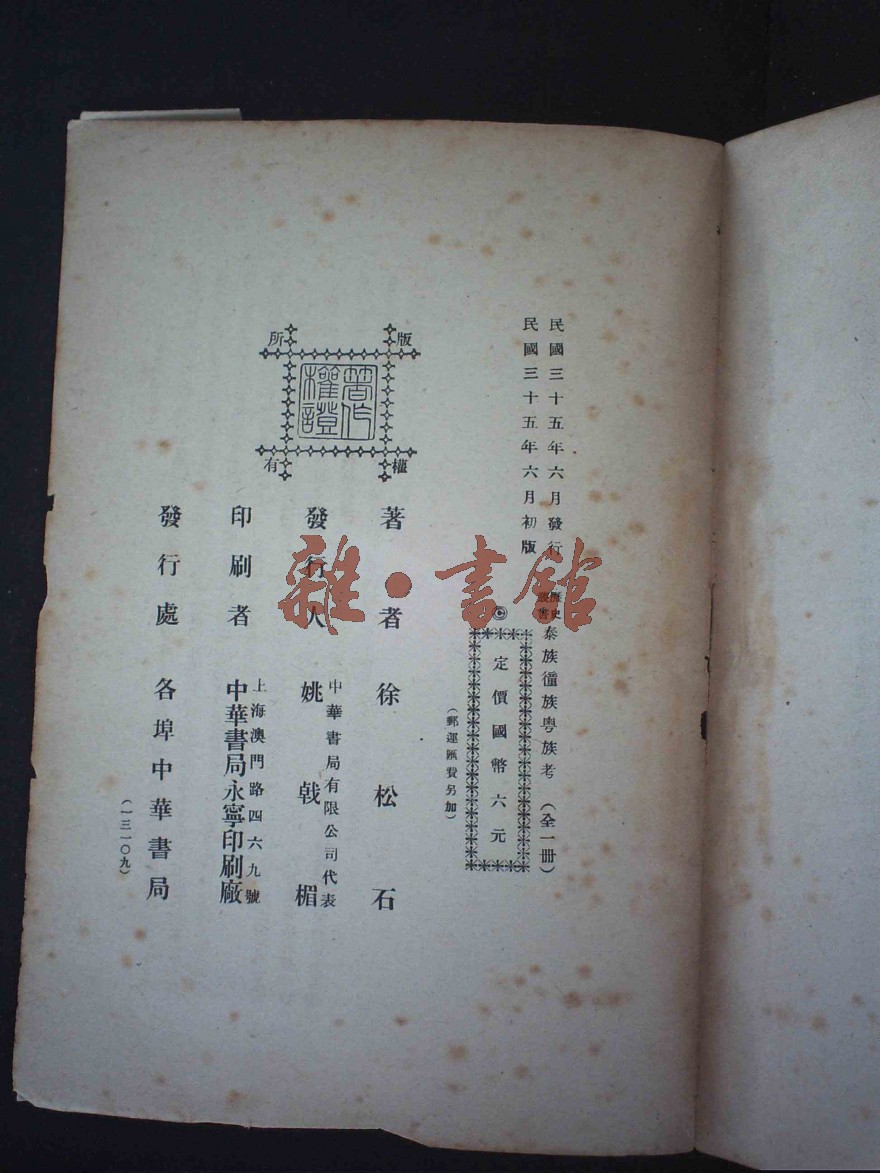 民國三十五年六月發行
民國三十五年六月初版
歷史叢書 泰族僮族粵族考（全一冊）
©
定價國幣六元
（郵運匯費另加）
版權所有
著作權證
著者 徐松石
發行人 姚戟楣
中華書局有限公司代表
印刷者 中華書局永寧印刷廠
上海澳門路四六九號
發行處 各埠中華書局
（一三一〇九）
雜·書館